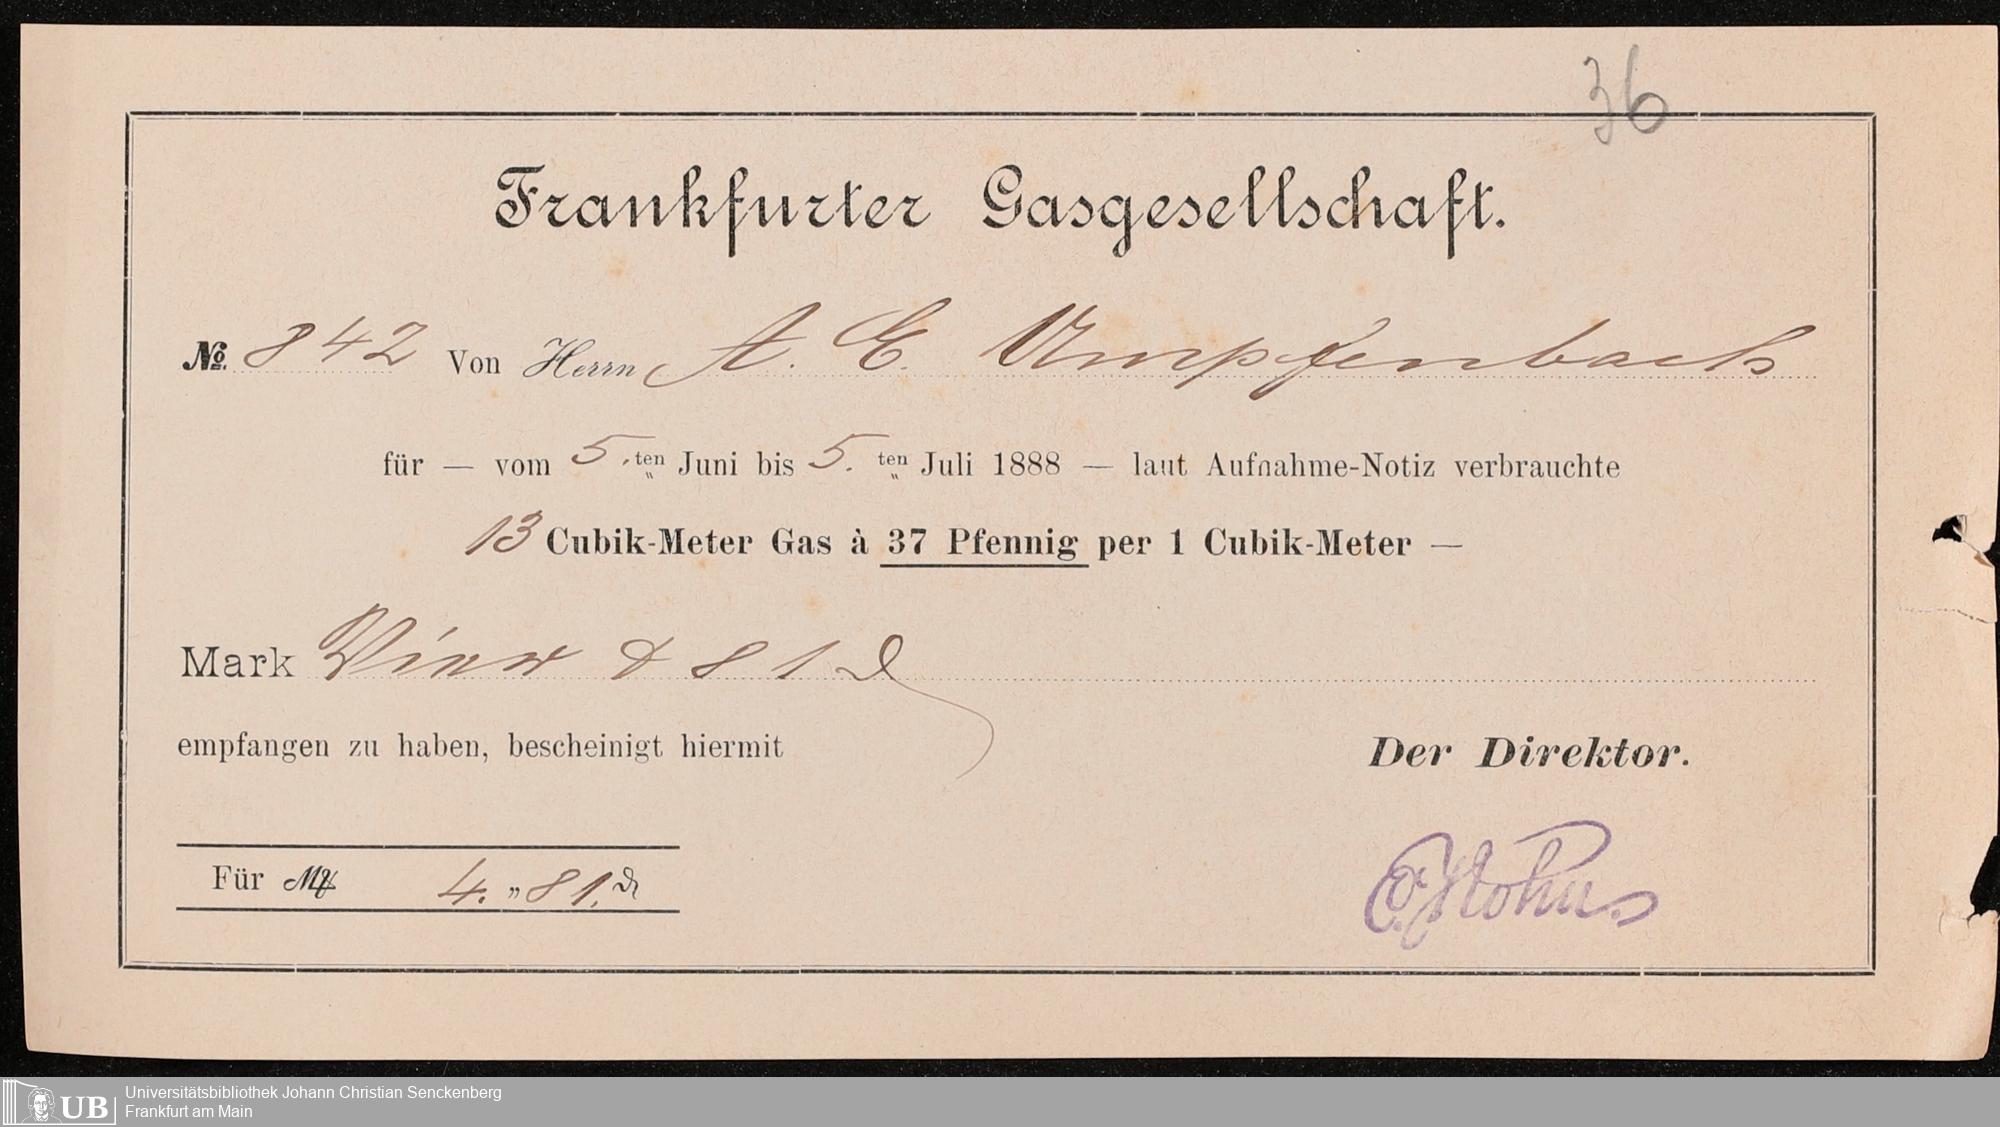 36
Frankfurter Gasgesellschaft.
No. 842 Von Herrn A. E. Umpfenbach
für — vom 5.ten Juni bis 5.ten Juli 1888 — laut Aufnahme-Notiz verbrauchte
13 Cubik-Meter Gas à 37 Pfennig per 1 Cubik-Meter —
Mark Vier & 81 ₰
empfangen zu haben, bescheinigt hiermit
Der Direktor.
Für ℳ 4. „ 81. ₰
UB
Universitätsbibliothek Johann Christian Senckenberg
Frankfurt am Main